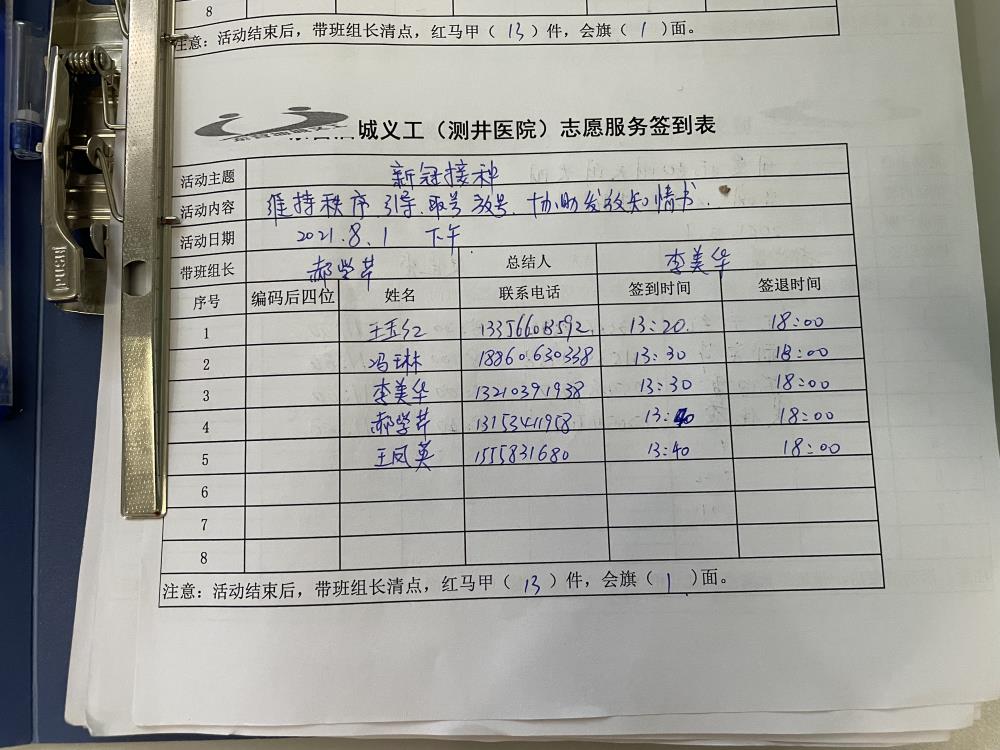 8
注意：活动结束后，带班组长清点，红马甲（ 13 ）件，会旗（ 1 ）面。
城义工（测井医院）志愿服务签到表
活动主题 新冠接种
活动内容 维持秩序、引导、取号、放号、协助发放知情书.
活动日期 2021.8.1 下午
带班组长 郝学芹 总结人 李美华
序号 编码后四位 姓名 联系电话 签到时间 签退时间
1 王玉红 13356608592 13:20 18:00
2 冯琳 18860630338 13:30 18:00
3 李美华 13210391938 13:30 18:00
4 郝学芹 13153411958 13:40 18:00
5 王凤英 1555831680 13:40 18:00
6
7
8
注意：活动结束后，带班组长清点，红马甲（ 13 ）件，会旗（ 1 ）面。